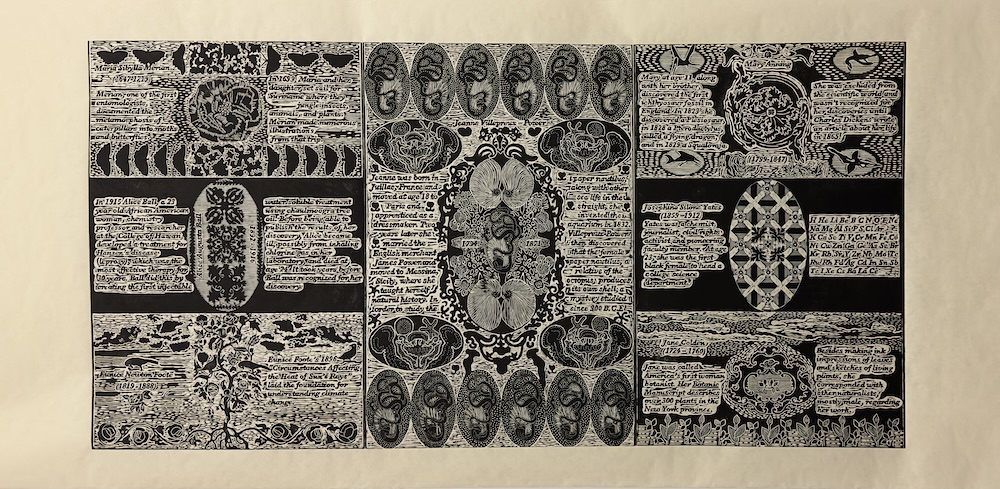 Maria Sibylla Merian
(1647-1717)
Merian, one of the first
entomologists
documented the
metamorphosis of
caterpillars into moths
and butterflies.
In 1699, Maria and her
daughter set sail for
Surinam where they
jungle insects,
animals, and plants.
Merian made numerous
illustrations
from that trip.
In 1915 Alice Ball, a 23
year old African American
woman, chemistry
professor, and researcher
at the College of Hawaii,
developed a treatment for
Hansen's disease
(leprosy), which was the
most effective therapy for
80 years. Ball did this by
creating the first injectable
water soluble treatment
using chaulmoogra tree
oil. Before being able to
publish the results of her
discovery, Alice became
ill, possibly from inhaling
chlorine gas in her
laboratory, and died at
age 24. It took years before
Ball was recognized for her
discovery.
Eunice Newton Foote
(1819-1888)
Eunice Foote's 1856
"Circumstances Affecting
the Heat of Sun's Rays"
laid the foundation for
understanding climate
change.
Jeanne Villepreux-Power
Jeanne was born
Juillac, France and
moved at age 18 to
Paris and
apprenticed as a
dressmaker. Two
years later she
married the
English merchant
James Power and
moved to Messina,
Sicily, where she
taught herself
natural history. In
order to study the
1794
1871
paper nautilus
along with other
sea life in the
straight, she
invented the
aquarium in 1832.
Villepreux-Power
discovered
that the female
nautilus, a
relative of the
octopus, produces
its own shell, a
mystery studied
since 300 B.C.E.
Mary Anning
Mary, at age 11, along
with her brother,
discovered the first
ichthyosaur fossil in
discovered a Plesiosaur
in 1828 a Pterodactylus
and a flying dragon,
and in 1829 a Squaloraja.
(1799-1847)
She was excluded from
the scientific world and
wasn't recognized for
her discoveries.
Charles Dickens wrote
an article about her life
in 1865.
Josephine Silone Yates
(1859-1912)
Yates was a chemist,
journalist, civil rights
activist, and pioneering
faculty member. At age
25, she was the first
black female to head a
science
department.
H He Li Be B C N O F Ne
Na Mg Al Si P S Cl Ar K
Ca Sc Ti V Cr Mn Fe Co
Ni Cu Zn Ga Ge As Se Br
Kr Rb Sr Y Zr Nb Mo Tc
Ru Rh Pd Ag Cd In Sn Sb
Te I Xe Cs Ba La Ce
Jane Colden
(1724-1760)
Jane was called
America's first woman
botanist. Her Botanic
Manuscript describes
over 300 plants in the
New York province.
Besides making ink
impressions of leaves
and sketches of living
plants, she
corresponded with
other naturalists,
mostly male, regarding
her work.